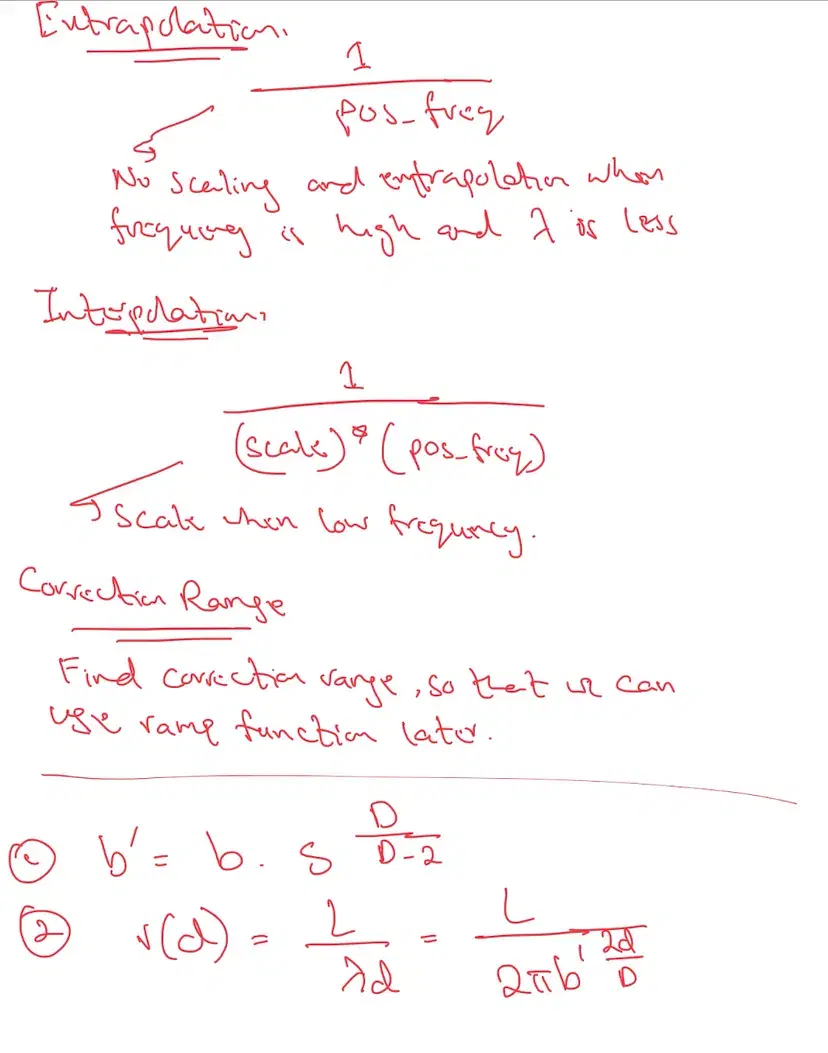 Extrapolation.
1 / pos_freq
No scaling and extrapolation when
frequency is high and λ is less
Interpolation.
1 / (scale) * (pos_freq)
Scale when low frequency.
Correction Range
Find correction range, so that we can
use ramp function later.
① b' = b . s^(D/(D-2))
② r(d) = L/λd = L/(2πb'^(2d/D))